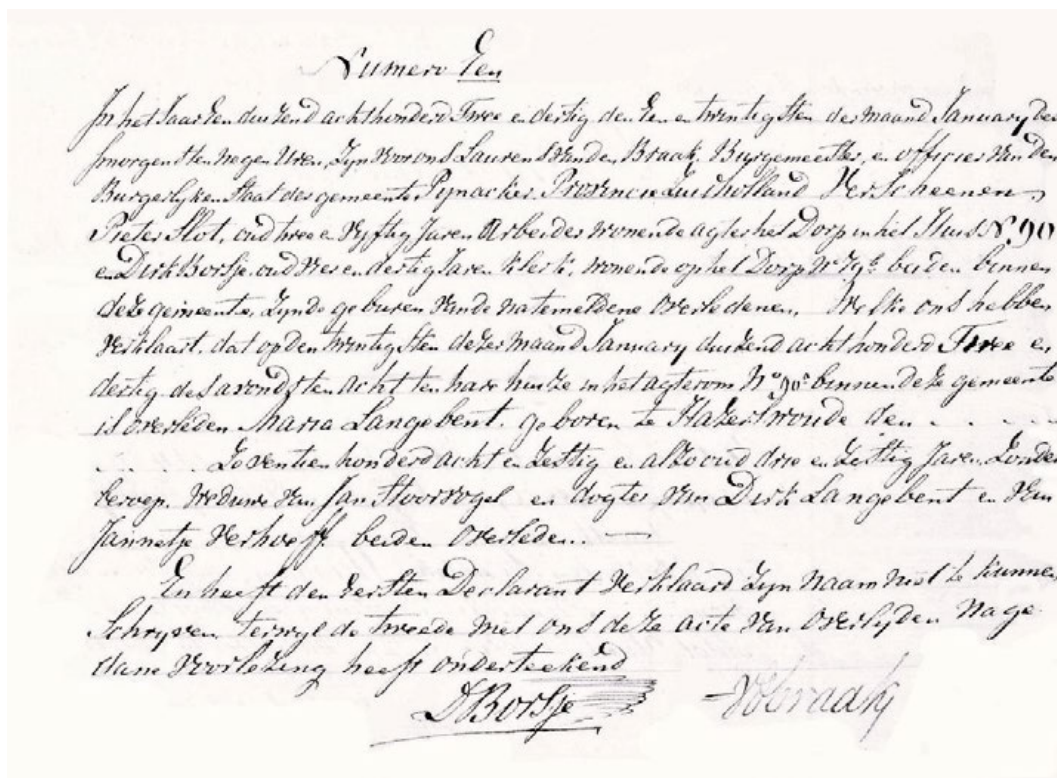 Numero Een
In het Jaar Een duizend achthonderd Twee en dertig den Een en twintigsten der maand January des
smorgens ten negen Uren, Zyn voor ons Laurens van den Braak, Burgemeester, en officier van den
Burgerlyken Staat der gemeente Pynacker, Provincie Zuidholland Verscheenen
Pieter Slot, oud twee en vyftig Jaren Arbeider wonende agter het Dorp in het Huis N. 90
en Dirk Borsje, oud en dertig Jaren Klerk, wonende op het Dorp beiden binnen
deze gemeente, Zynde geburen van de natemeldene overledenen, Welke ons hebben
verklaart, dat op den twintigsten dezer maand January duizend achthonderd Twee en
dertig des avonds ten acht ten hare huize in het agterom N° 90 binnen deze gemeente
is overleden Maria Langebent, geboren te Hazerswoude den . . . . .
. . . . . Zeventien honderd acht en Zestig en alzo oud drie en Zestig Jaren Zonder
beroep, Weduwe van Jan en dogter van Dirk Langebent en van
Jannetje Verhoeff. beiden overleden. —
En heeft den Eersten Declarant verklaard Zyn naam niet te kunnen
Schryven terwyl de tweede met ons deze acte van overlyden na ge
dane voorlezing heeft onderteekend
D Borsje VdBraak